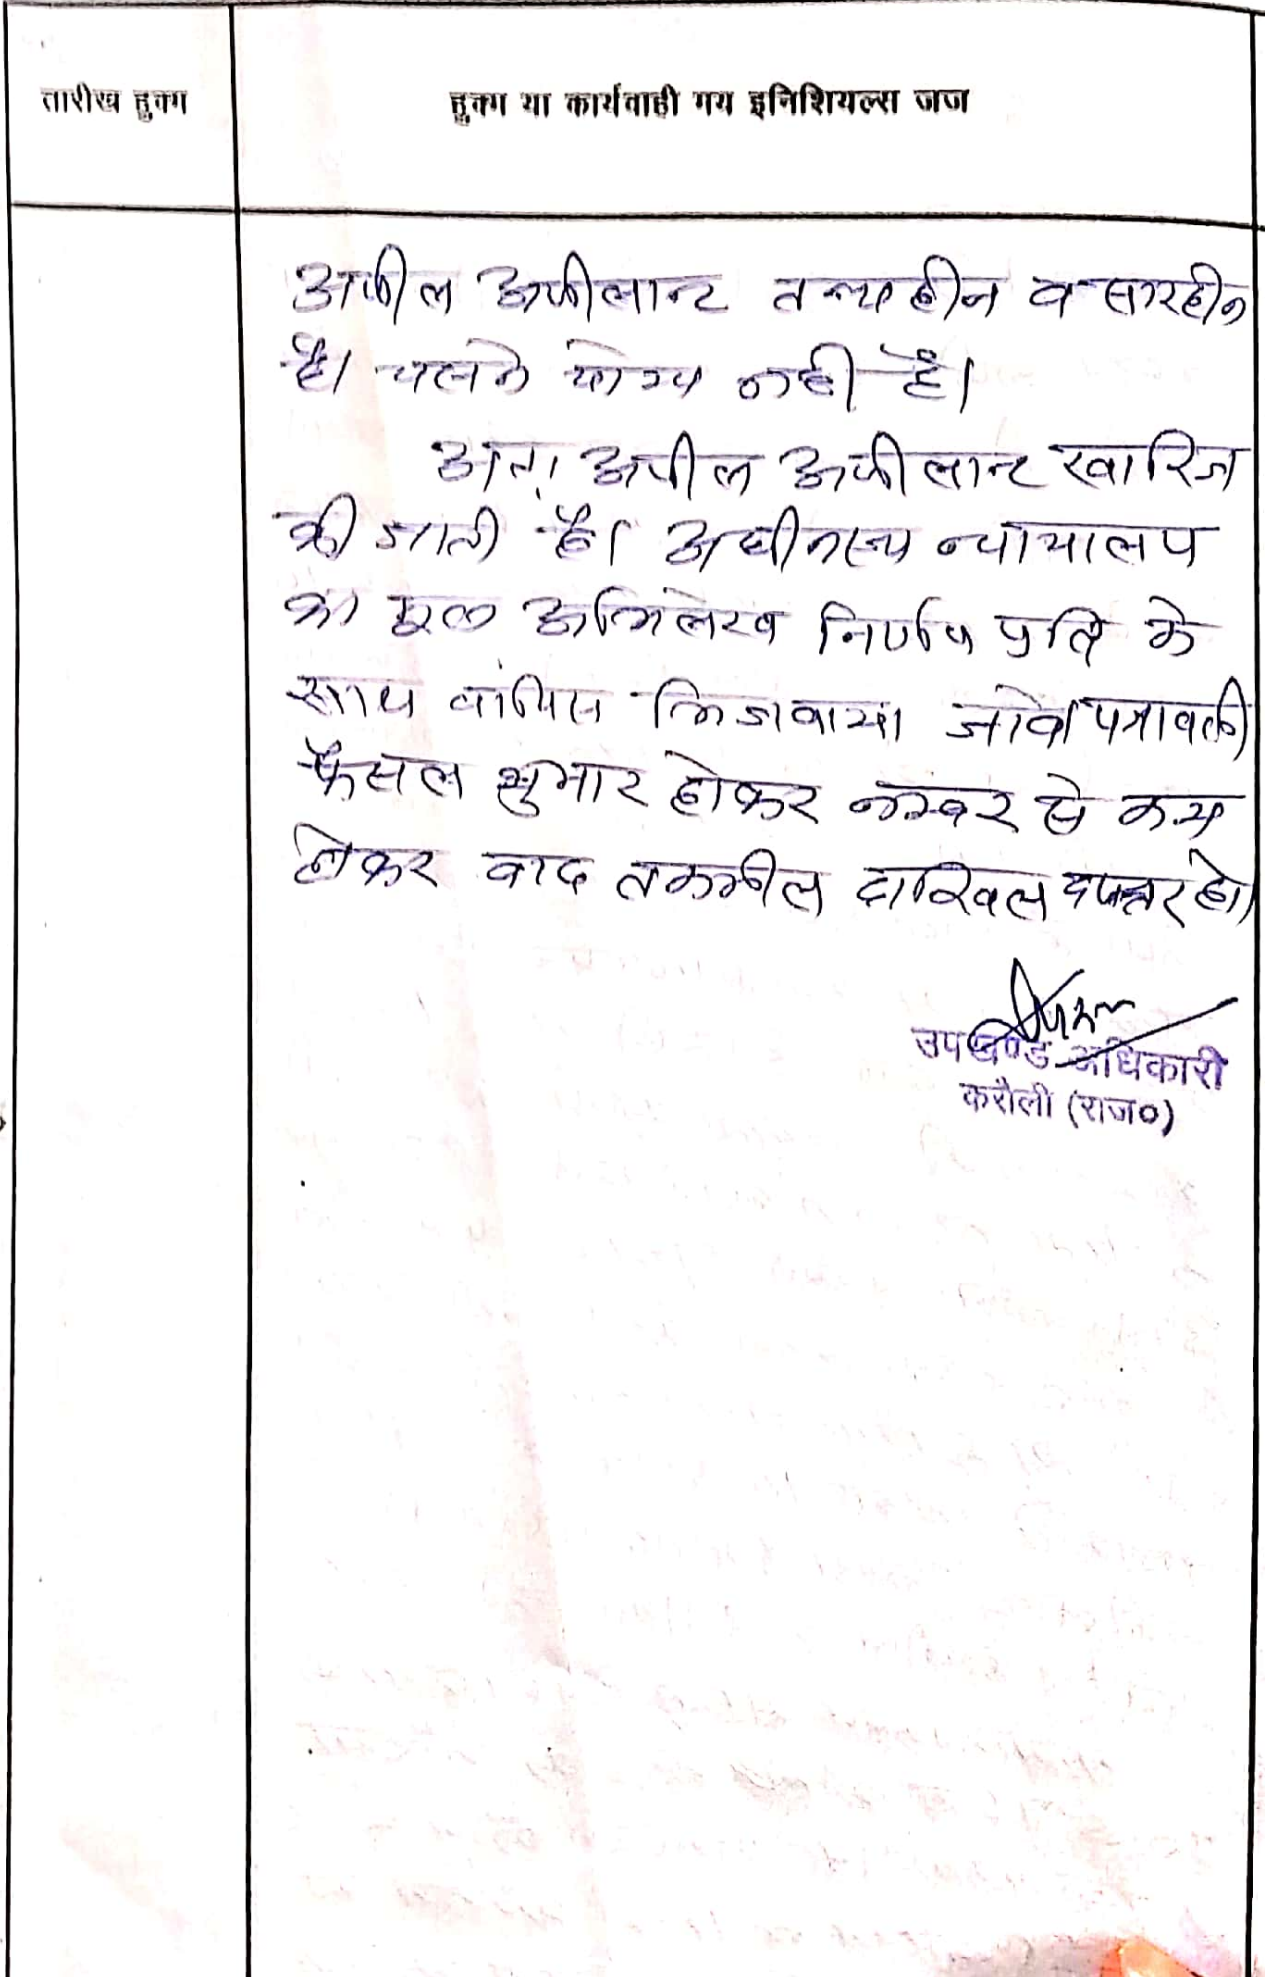 तारीख हुक्म
हुक्म या कार्यवाही मय इनिशियल्स जज
अपील अपीलान्ट तथ्यहीन व सारहीन
है। चलने योग्य नही है।
अतः अपील अपीलान्ट खारिज
की जाती है। अधीनस्थ न्यायालय
का मूल अभिलेख निर्णय प्रति के
साथ वापिस भिजवाया जावे। पत्रावली
फैसल शुमार होकर नम्बर से कम
होकर बाद तकमील दाखिल दफ्तर हो।
उपखण्ड अधिकारी
करौली (राज०)